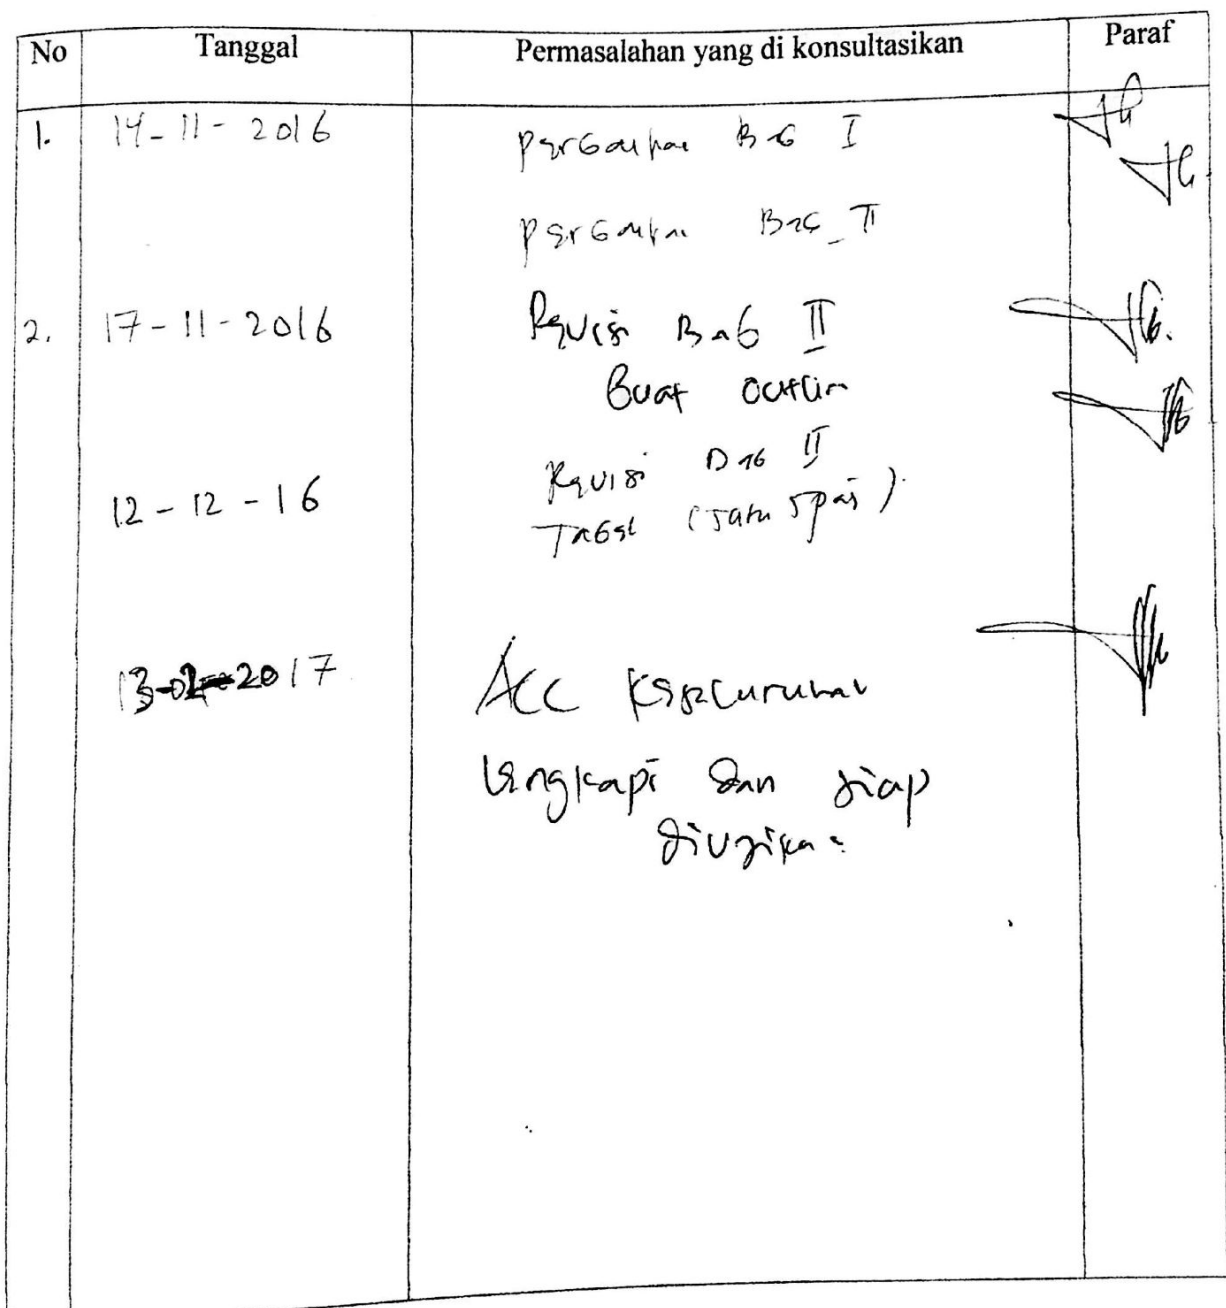 No Tanggal Permasalahan yang di konsultasikan Paraf
1. 14-11-2016 Perbaikan Bab I
Perbaikan Bab II
2. 17-11-2016 Revisi Bab II
Buat outlin
Revisi Bab II
12-12-16 Tabel (satu spasi)
13-02-2017 Acc Keseluruhan
Lengkapi dan siap
diujikan